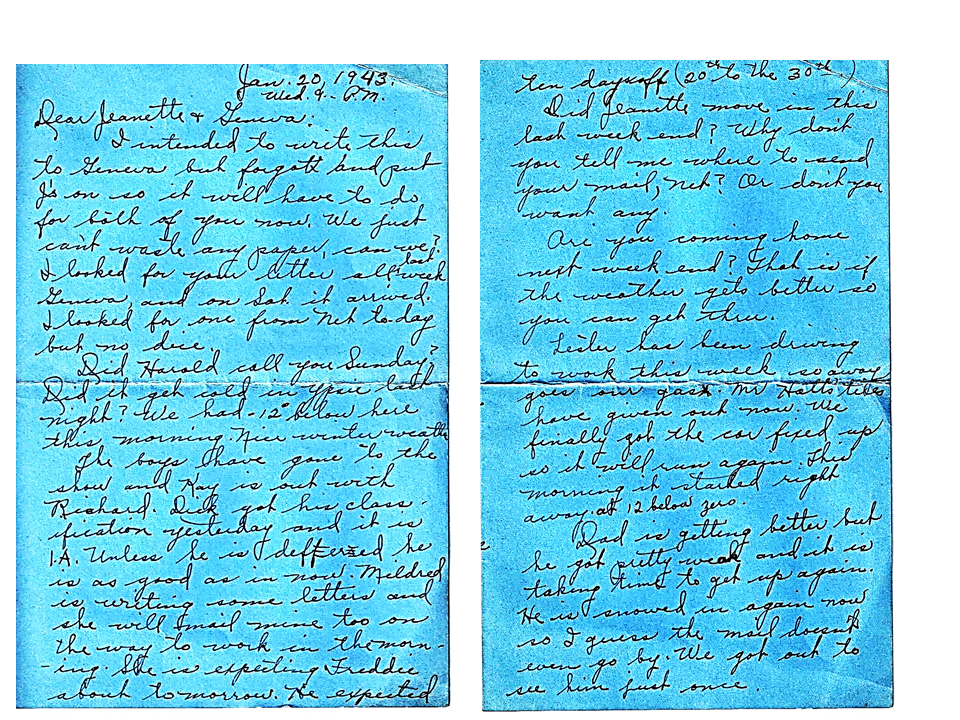 Jan. 20, 1943.
Wed. 9 - P.M.
Dear Jeanette & Geneva:
I intended to write this
to Geneva but forgott and put
J's on so it will have to do
for both of you now. We just
can't waste any paper, can we?
I looked for your letter all last week
Geneva, and on Sat. it arrived.
I looked for one from Net to-day
but no dice.
Did Harold call you Sunday?
Did it get cold in Ypsi last
night? We had -12° below here
this morning. Nice winter weather
The boys have gone to the
show and Kay is out with
Richard. Dick got his class-
ification yesterday and it is
1.A. Unless he is defferred he
is as good as in now. Mildred
is writing some letters and
she will mail mine too on
the way to work in the morn-
-ing. She is expecting Freddie
about tomorrow. He expected
ten days off (20th to the 30th)
Did Jeanette move in this
last week end? Why don't
you tell me where to send
your mail, Net? Or don't you
want any.
Are you coming home
next week end? That is if
the weather gets better so
you can get thru.
Lester has been driving
to work this week so away
goes our gas. Mr Hatts tires
have given out now. We
finally got the car fixed up
so it will run again. This
morning it started right
away at 12 below zero.
Dad is getting better but
he got pretty weak and it is
taking time to get up again.
He is snowed in again now
so I guess the mail doesn't
even go by. We got out to
see him just once.